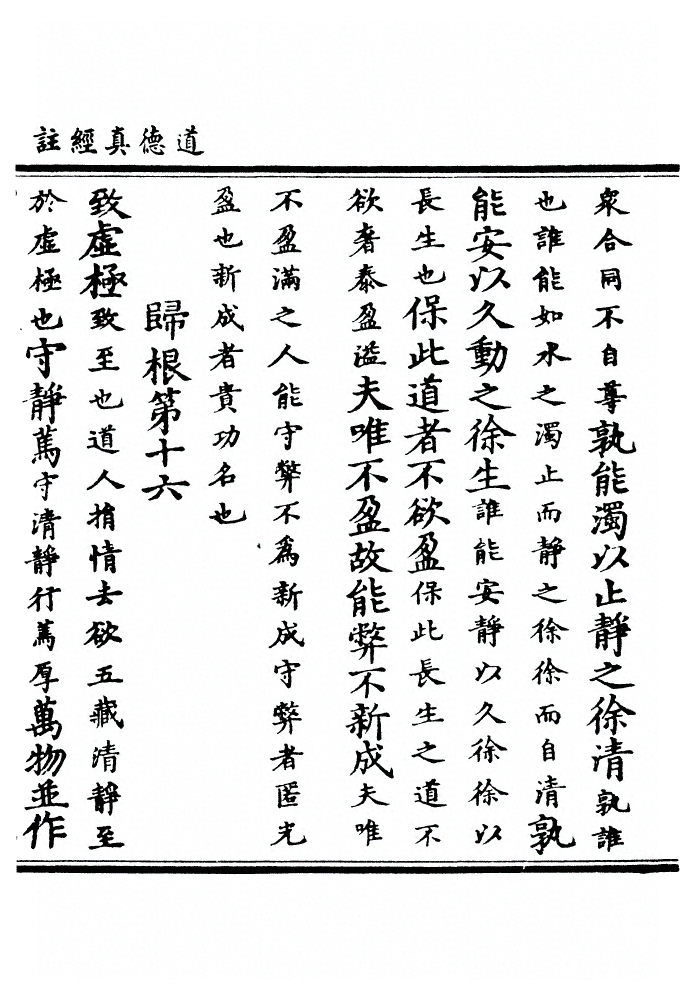 道德真經註
衆合同不自尊孰能濁以止靜之徐清孰誰
也誰能如水之濁止而靜之徐徐而自清孰
能安以久動之徐生誰能安靜以久徐徐以
長生也保此道者不欲盈保此長生之道不
欲奢泰盈溢夫唯不盈故能弊不新成夫唯
不盈滿之人能守弊不爲新成守弊者匿光
盈也新成者貴功名也
歸根第十六
致虛極致至也道人捐情去欲五藏清靜至
於虛極也守靜篤守清靜行篤厚萬物並作